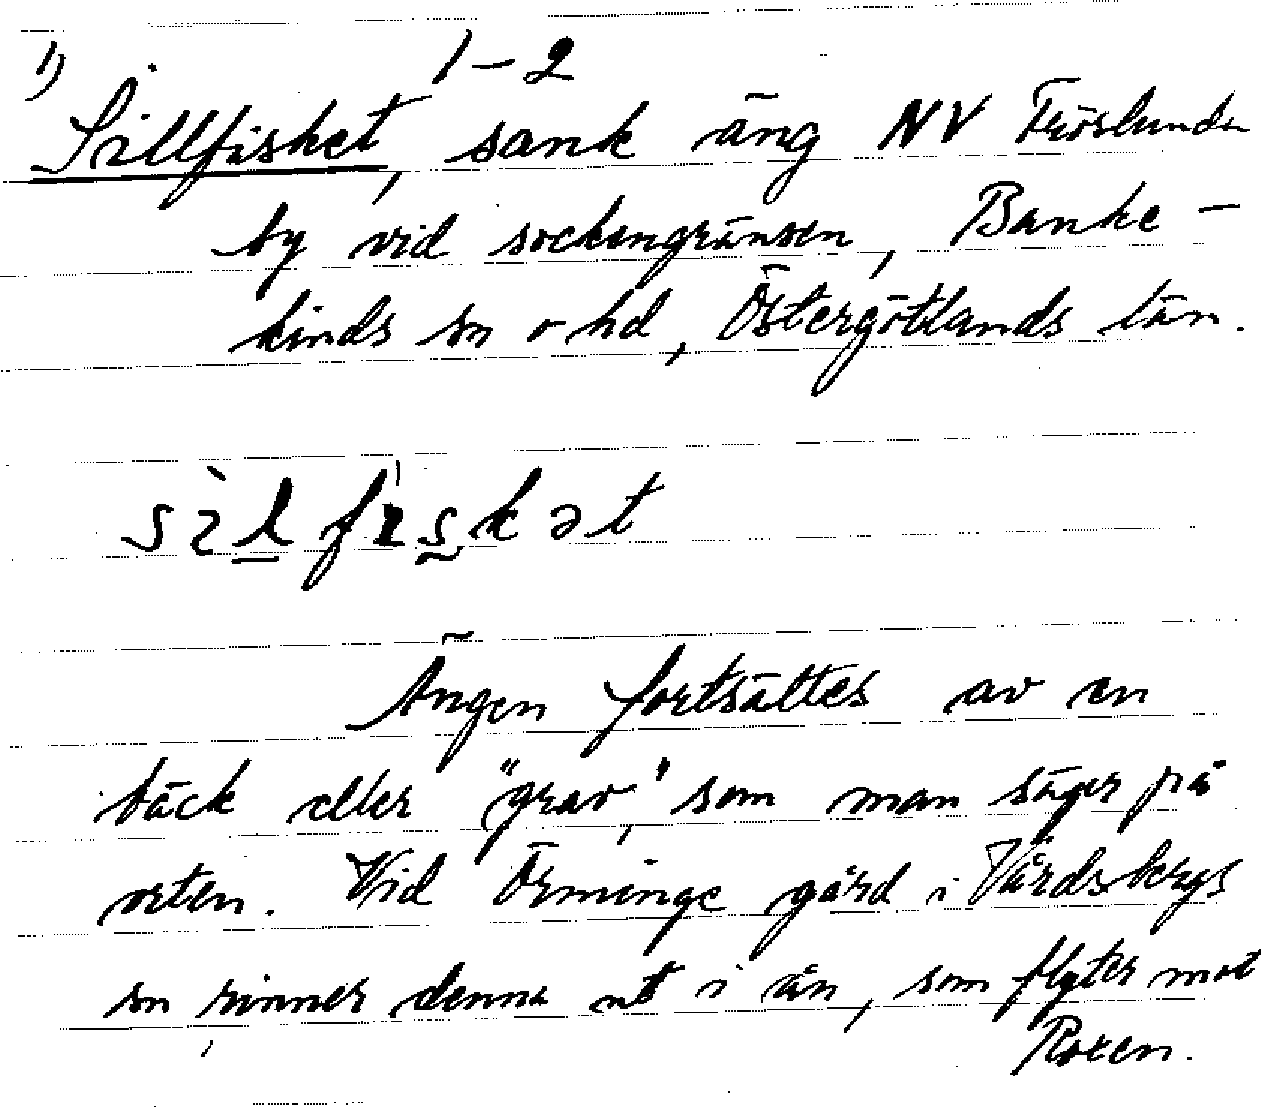 1) 1-2
Sillfisket, sank äng NV Fröslunda
by vid sockengränsen, Banke-
kinds sn o hd, Östergötlands län.
sìlfıskət
Ängen fortsättes av en
bäck eller "grav", som man säger på
orten. Vid Örminge gård i Vårdsbergs
sn rinner denna ut i ån, som flyter mot
Roxen.